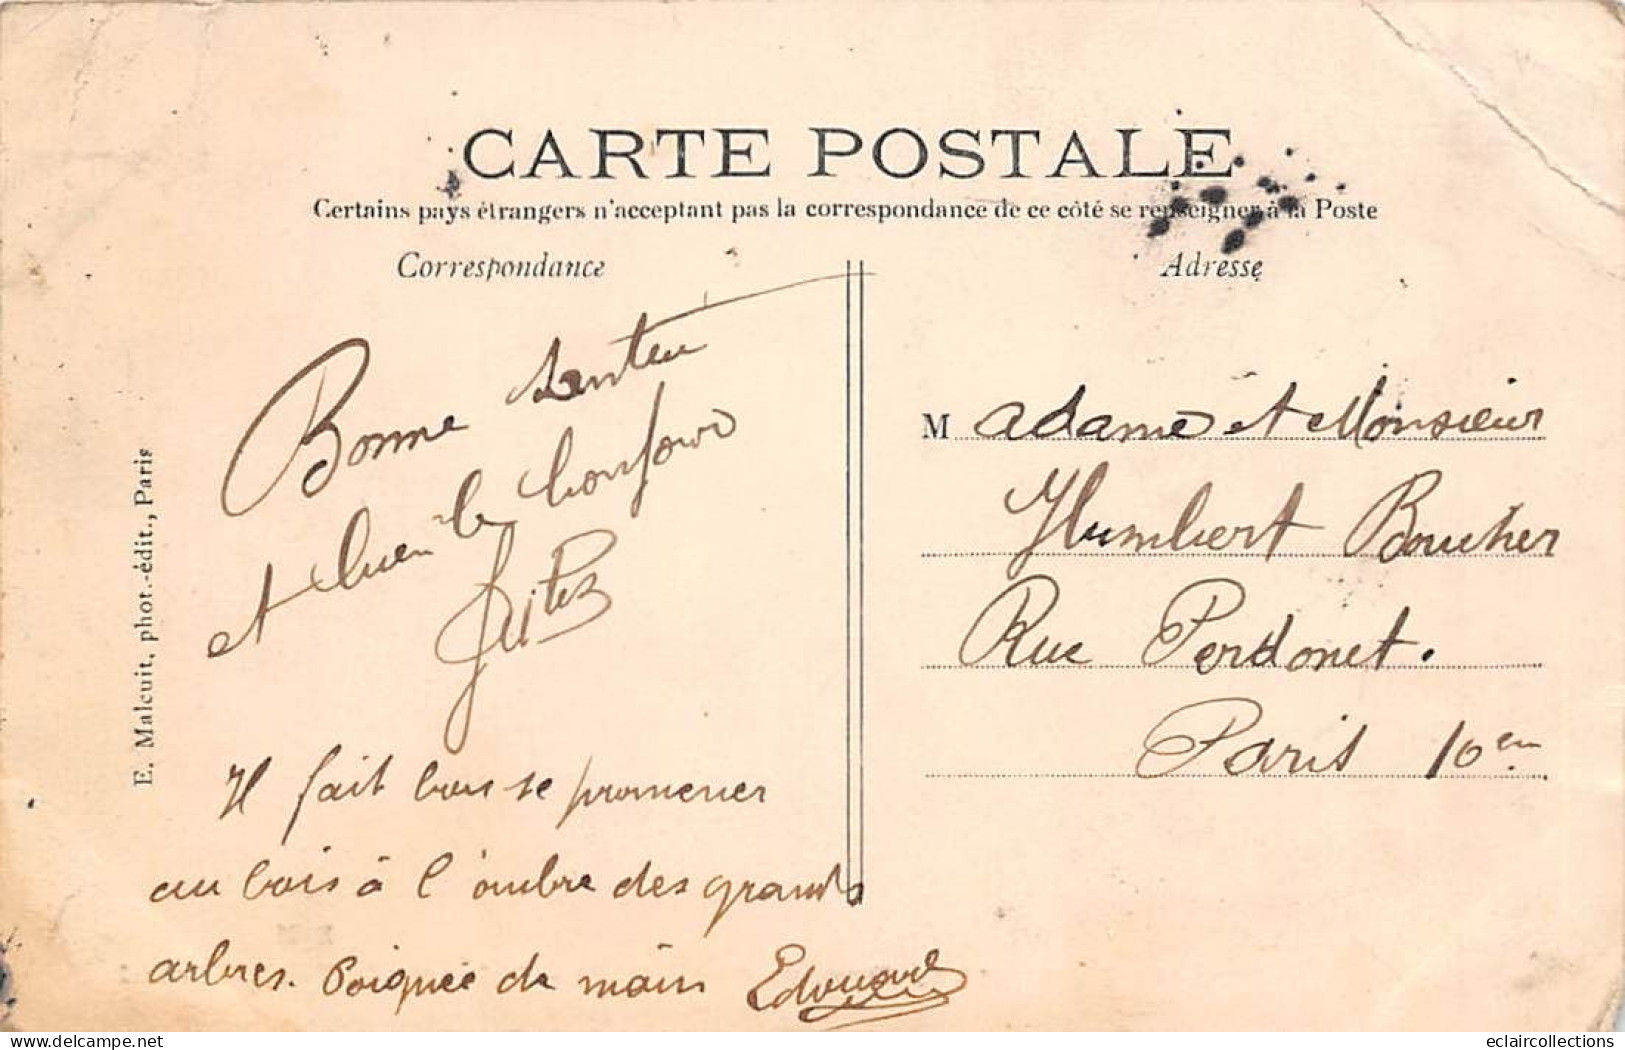 CARTE POSTALE
Certains pays étrangers n'acceptant pas la correspondance de ce côté se renseigner à la Poste
Correspondance
Bonne
et bien le bonjour
Il fait bon se promener
au bois à l'ombre des grands
arbres. Poignée de main Edouard
E. Malcuit, phot.-édit., Paris
Adresse
M adame et Monsieur
Humbert Boucher
Rue Perdonet.
Paris 10em
delcampe.net
eclaircollections